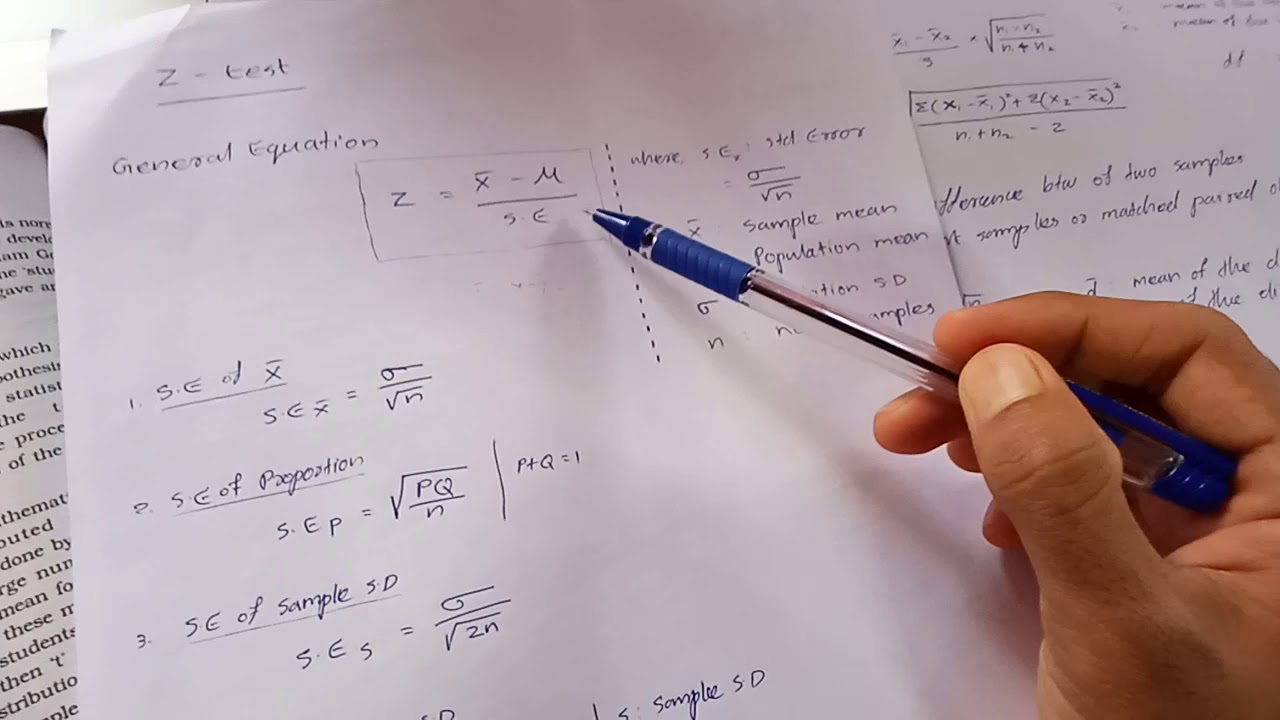 Z - test
General Equation
Z = x̄ - μ / S.E
where, S.E, : Std Error
= σ / √n
x̄ : Sample mean
Population mean
σ tion SD
n : n amples
1. S.E of x̄
S.E x̄ = σ / √n
2. S.E of Proportion
S.E P = √PQ / n | P+Q = 1
3. S.E of Sample S.D
S.E s = σ / √2n
S.D
s : Sample S.D
x̄₁ - x̄₂ / S × √n₁ - n₂ / n₁ + n₂
df
√Σ(x₁ - x̄₁)² + Σ(x₂ - x̄₂)² / n₁ + n₂ - 2
ifference btw of two samples
t samples or matched paired o
d̄ : mean of the d
of the di
is nor
develo
am Go
he 'stu
gave a
which
othesi
statist
the t
e proce
of the
themat
buted
done by
rge num
mean fo
these m
students
then 't'
stributio
mple